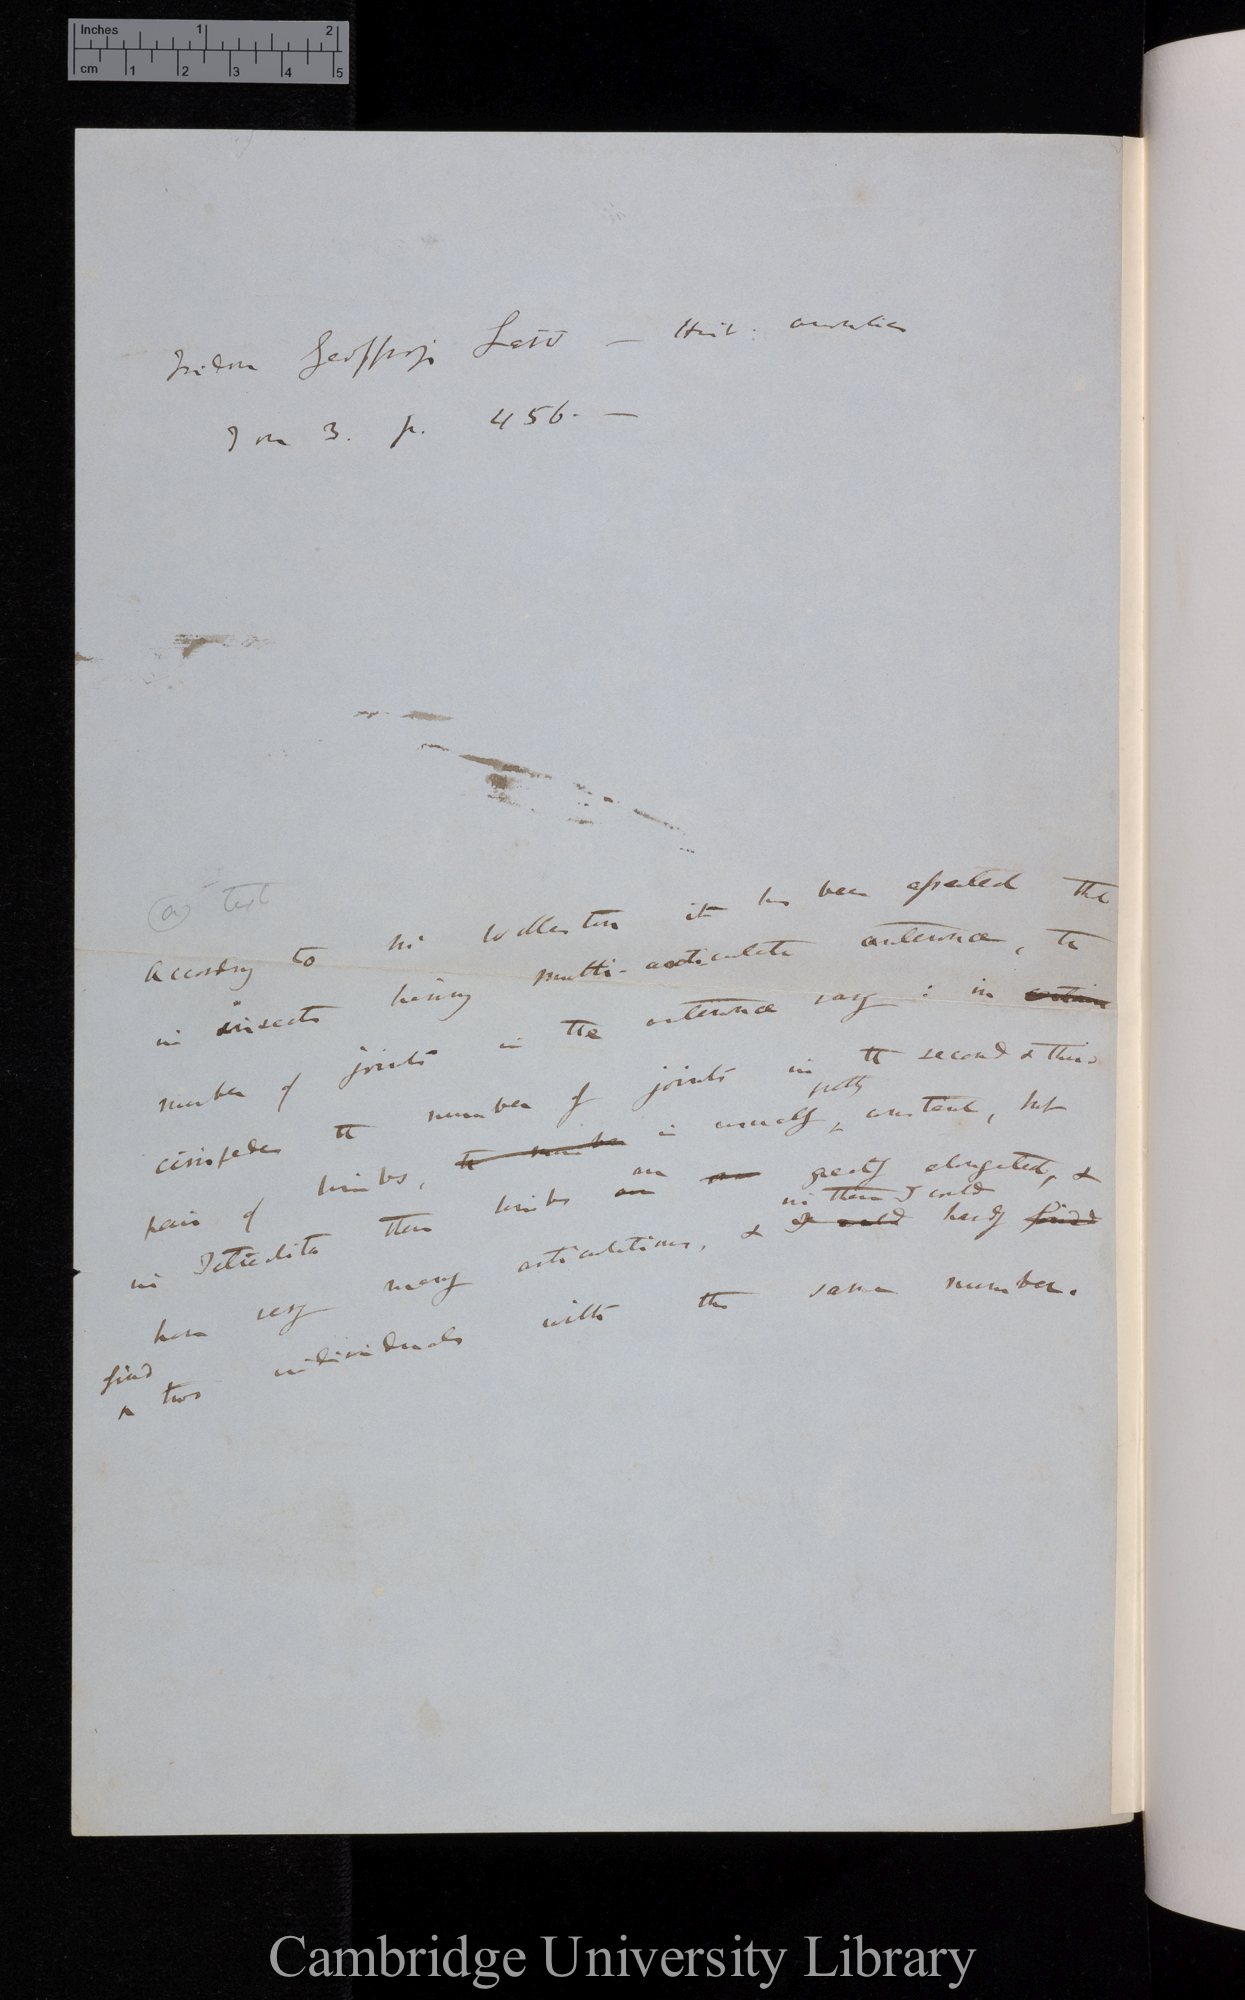 Inches 1 2
cm 1 2 3 4 5
Isidore Geoffroy Lett — Hist: anomalies
Tom 3. p. 456. —
(a) text
According to Mr Wollaston it has been asserted that
in insects having multi-articulate antennæ, the
number of joints in the antennæ vary: in certain
cirripedes the number of joints in the second & third
pair of limbs, the number is usually pretty constant, but
in Tetraclita these limbs are are greatly elongated, &
have very many articulations, & I could in them I could hardly find
find two individuals with the same number.
Cambridge University Library